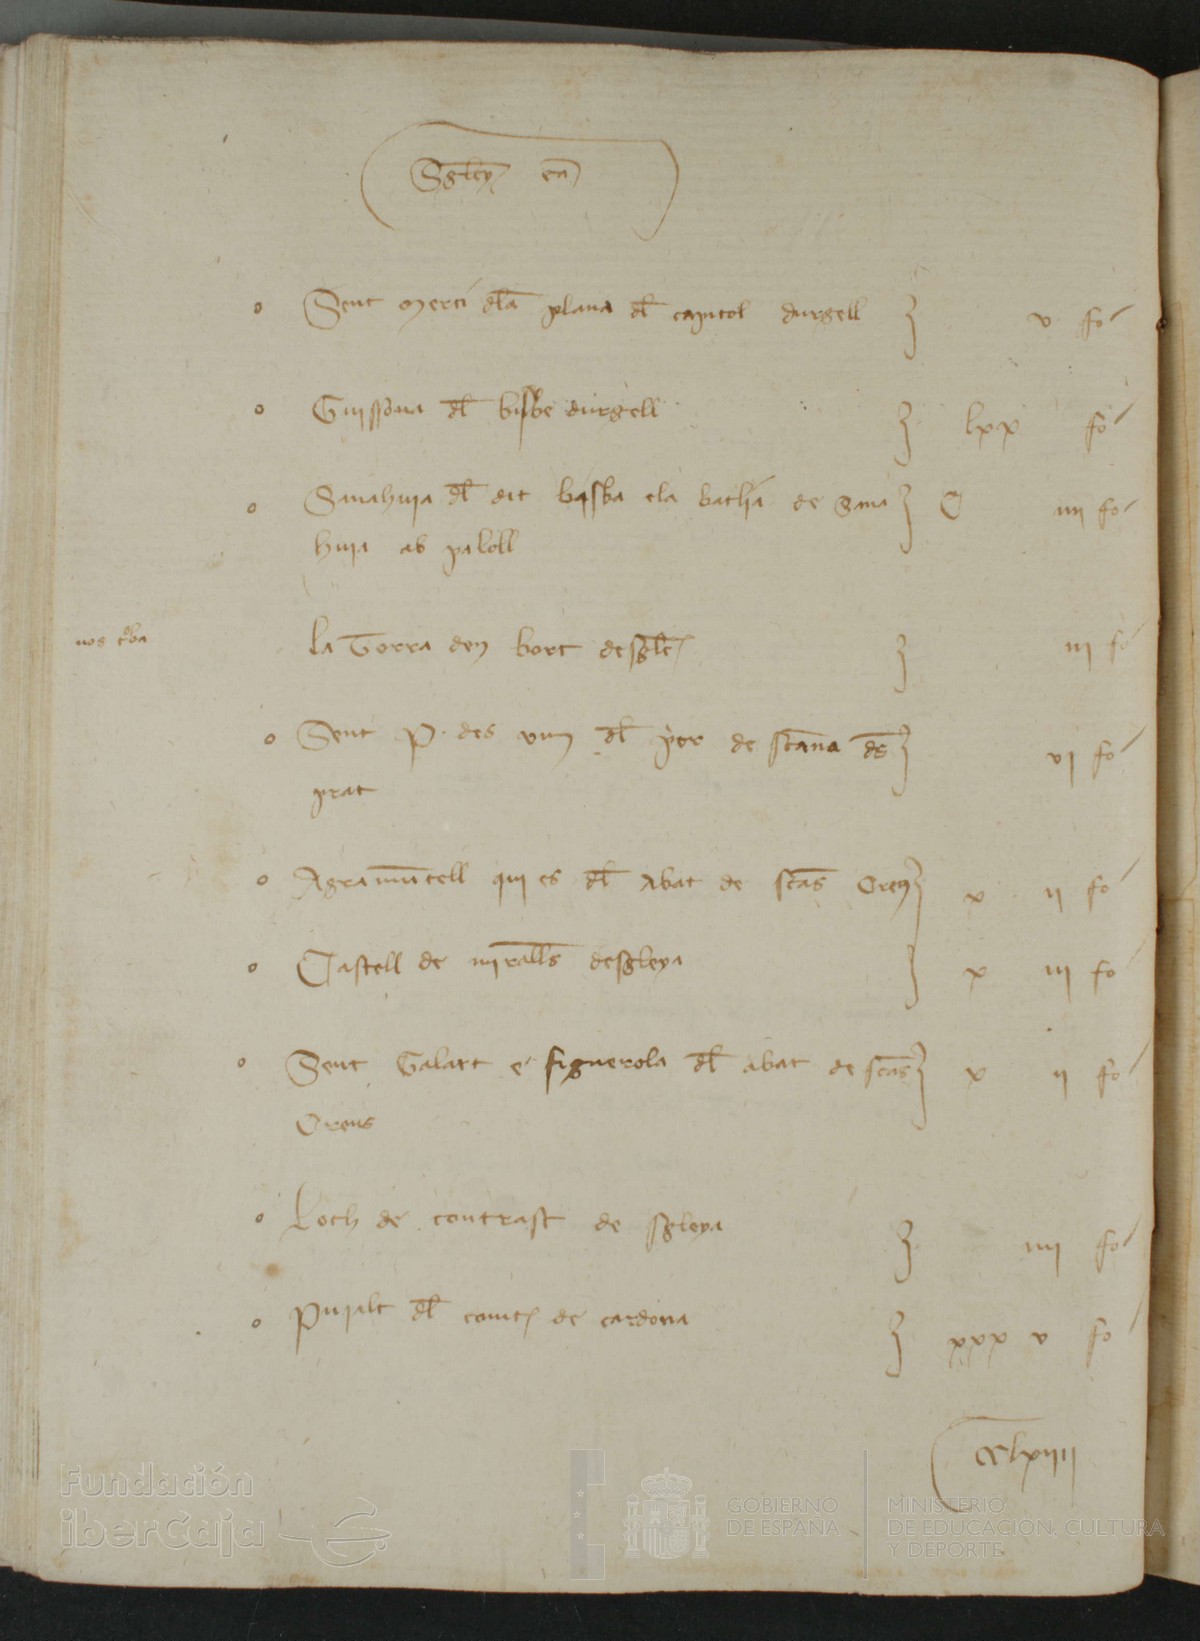 Sgley ea
o Sent Merci dla plana dl capitol durgell v fo
o Guissona dl bisbe durgell lxx fo
o Sanahuja dl dit bisba ela batlia de Sana C iiii fo
huja ab paloll
nos
la Torra den bort desgle iii fo
o Sent P. des vim dl pior de scana ds vi fo
prat
o Agramuntell qui es dl Abat de scas Creus x ii fo
o Castell de miralls desgleya x iii fo
o Sent Galart e figuerola dl abat de scas x ii fo
Creus
o Loch de contrast de sgleya iiii fo
o Pujalt dl comte de cardona xxx v fo
CClxiiii
Fundación
iberCaja
GOBIERNO
DE ESPAÑA
MINISTERIO
DE EDUCACIÓN, CULTURA
Y DEPORTE